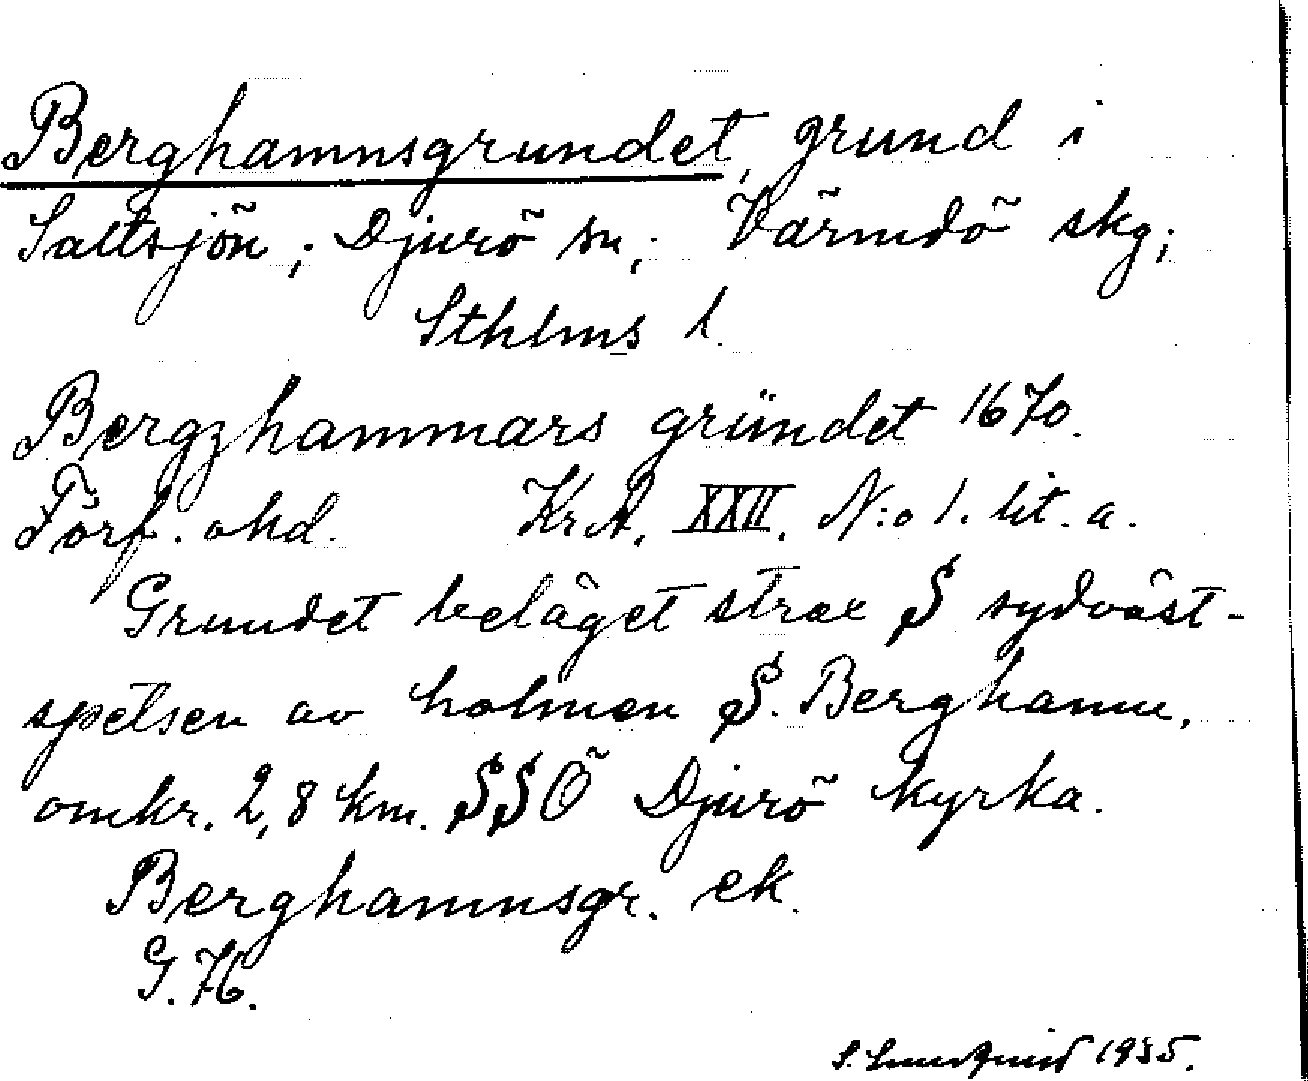 Berghamnsgrundet, grund i
Saltsjön; Djurö sn; Värmdö skg;
Sthlms l.
Bergzhammars gründet 1670.
Förf. okd. KrA, XXII. N:o 1. lit. a.
Grundet beläget strax S sydväst-
spetsen av holmen S. Berghamn,
omkr. 2,8 km. SSÖ Djurö kyrka.
Berghamnsgr. ek.
G.76.
S. 1935.